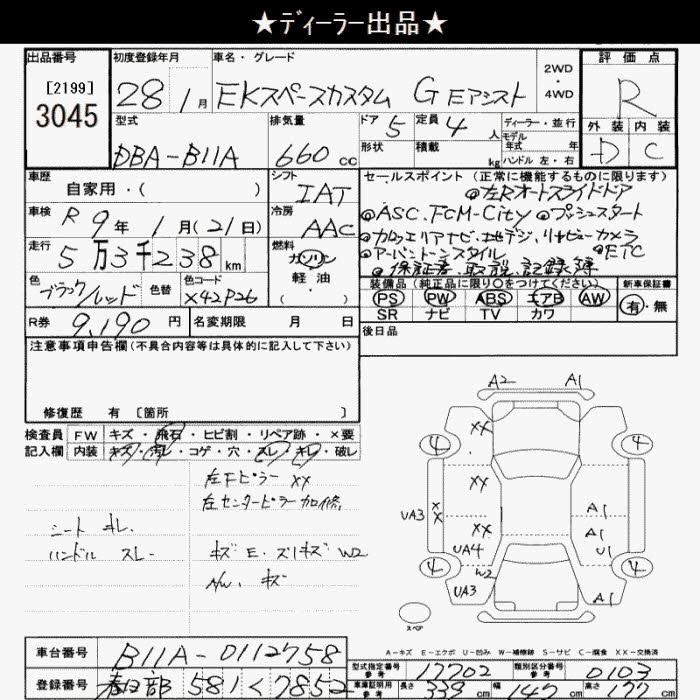 ★ディーラー出品★
出品番号 初度登録年月 車名・グレード 2WD・4WD 評価点
[2199] 3045 28 1月 EKスペースカスタム G Eアシスト R
型式 排気量 ドア 5 定員 4人 ディーラー・並行 外装 内装
DBA-B11A 660cc 形状 積載 kg モデル年式 年 ハンドル 左・右 D C
車歴 自家用・( ) シフト IAT セールスポイント(正常に機能するものに限ります)
◎左Rオートスライドドア
車検 R9年 1月(21日) 冷房 AAC ◎ASC.FCM-City ◎プッシュスタート
走行 5万3千238km 燃料 ガソリン ◎カロッェリアナビ、地デジ、リヤビューカメラ
軽油 ( ・ ) ◎アーバントーンスタイル ◎ETC
◎保証書、取説、記録簿
色 ブラック/レッド 色替 色コード X42P26 装備品(純正品に限り○をつけてください) 新車保証書
PS PW ABS エアB AW 有・無
R券 9,190円 名変期限 月 日 SR ナビ TV カワ
注意事項申告欄(不具合内容等は具体的に記入して下さい) 後日品
修復歴 有 〔箇所 〕
検査員 FW キズ・飛石・ヒビ割・リペア跡・×要
記入欄 内装 キズ・汚レ・コゲ・穴・スレ・キレ・破レ
左Fピラー XX
左センターピラー 加修
シート キレ
ハンドル スレ
キズ E. ズリキズ W2
A/W. キズ
A2 A1
XX
4 4
XX
UA3 XX A1
XX A1
UA4 U1
4 W2 4
UA3 A1
スペア
A-キズ E-エクボ U-凹み W-補修跡 S-サビ C-腐食 XX-交換済
車台番号 B11A-0112758
型式指定番号 参考 17702 類別区分番号 参考 0103
登録番号 春日部 581 く 7852
車庫証明用 参考 長さ 339cm 幅 147cm 高さ cm